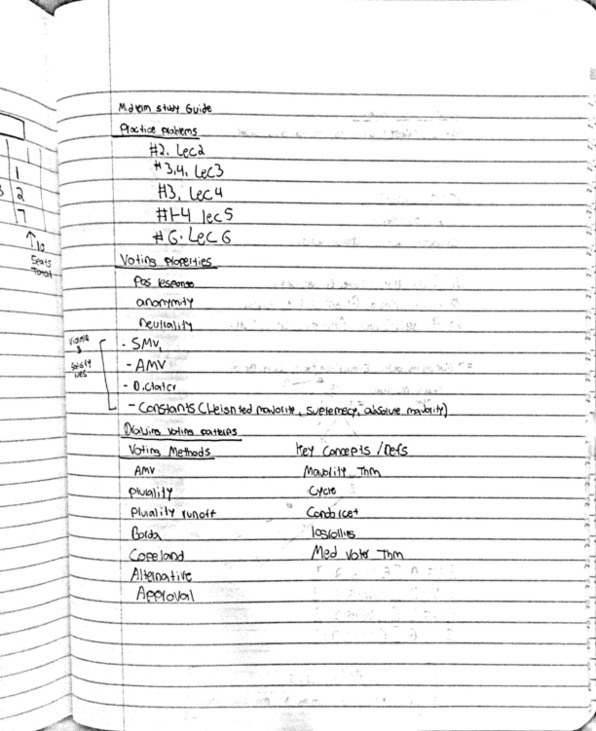 Midterm study Guide
Practice problems
#2. Lec2
#3,4. Lec3
#3, Lec4
#1-4 lec5
#6. Lec6
Voting properties
Pos response
anonymity
neutrality
- SMV,
- AMV
- Dictator
- Constants (Weighted majority, supremecy, absolute majority)
satisfy
Voting patterns
Voting Methods
Key Concepts / Defs
AMV
Majority Thm
Plurality
Cycle
Plurality runoff
Condorcet
Borda
Copeland
Med Voter Thm
Alternative
Approval
1
1
2
7
10
Seats
Total